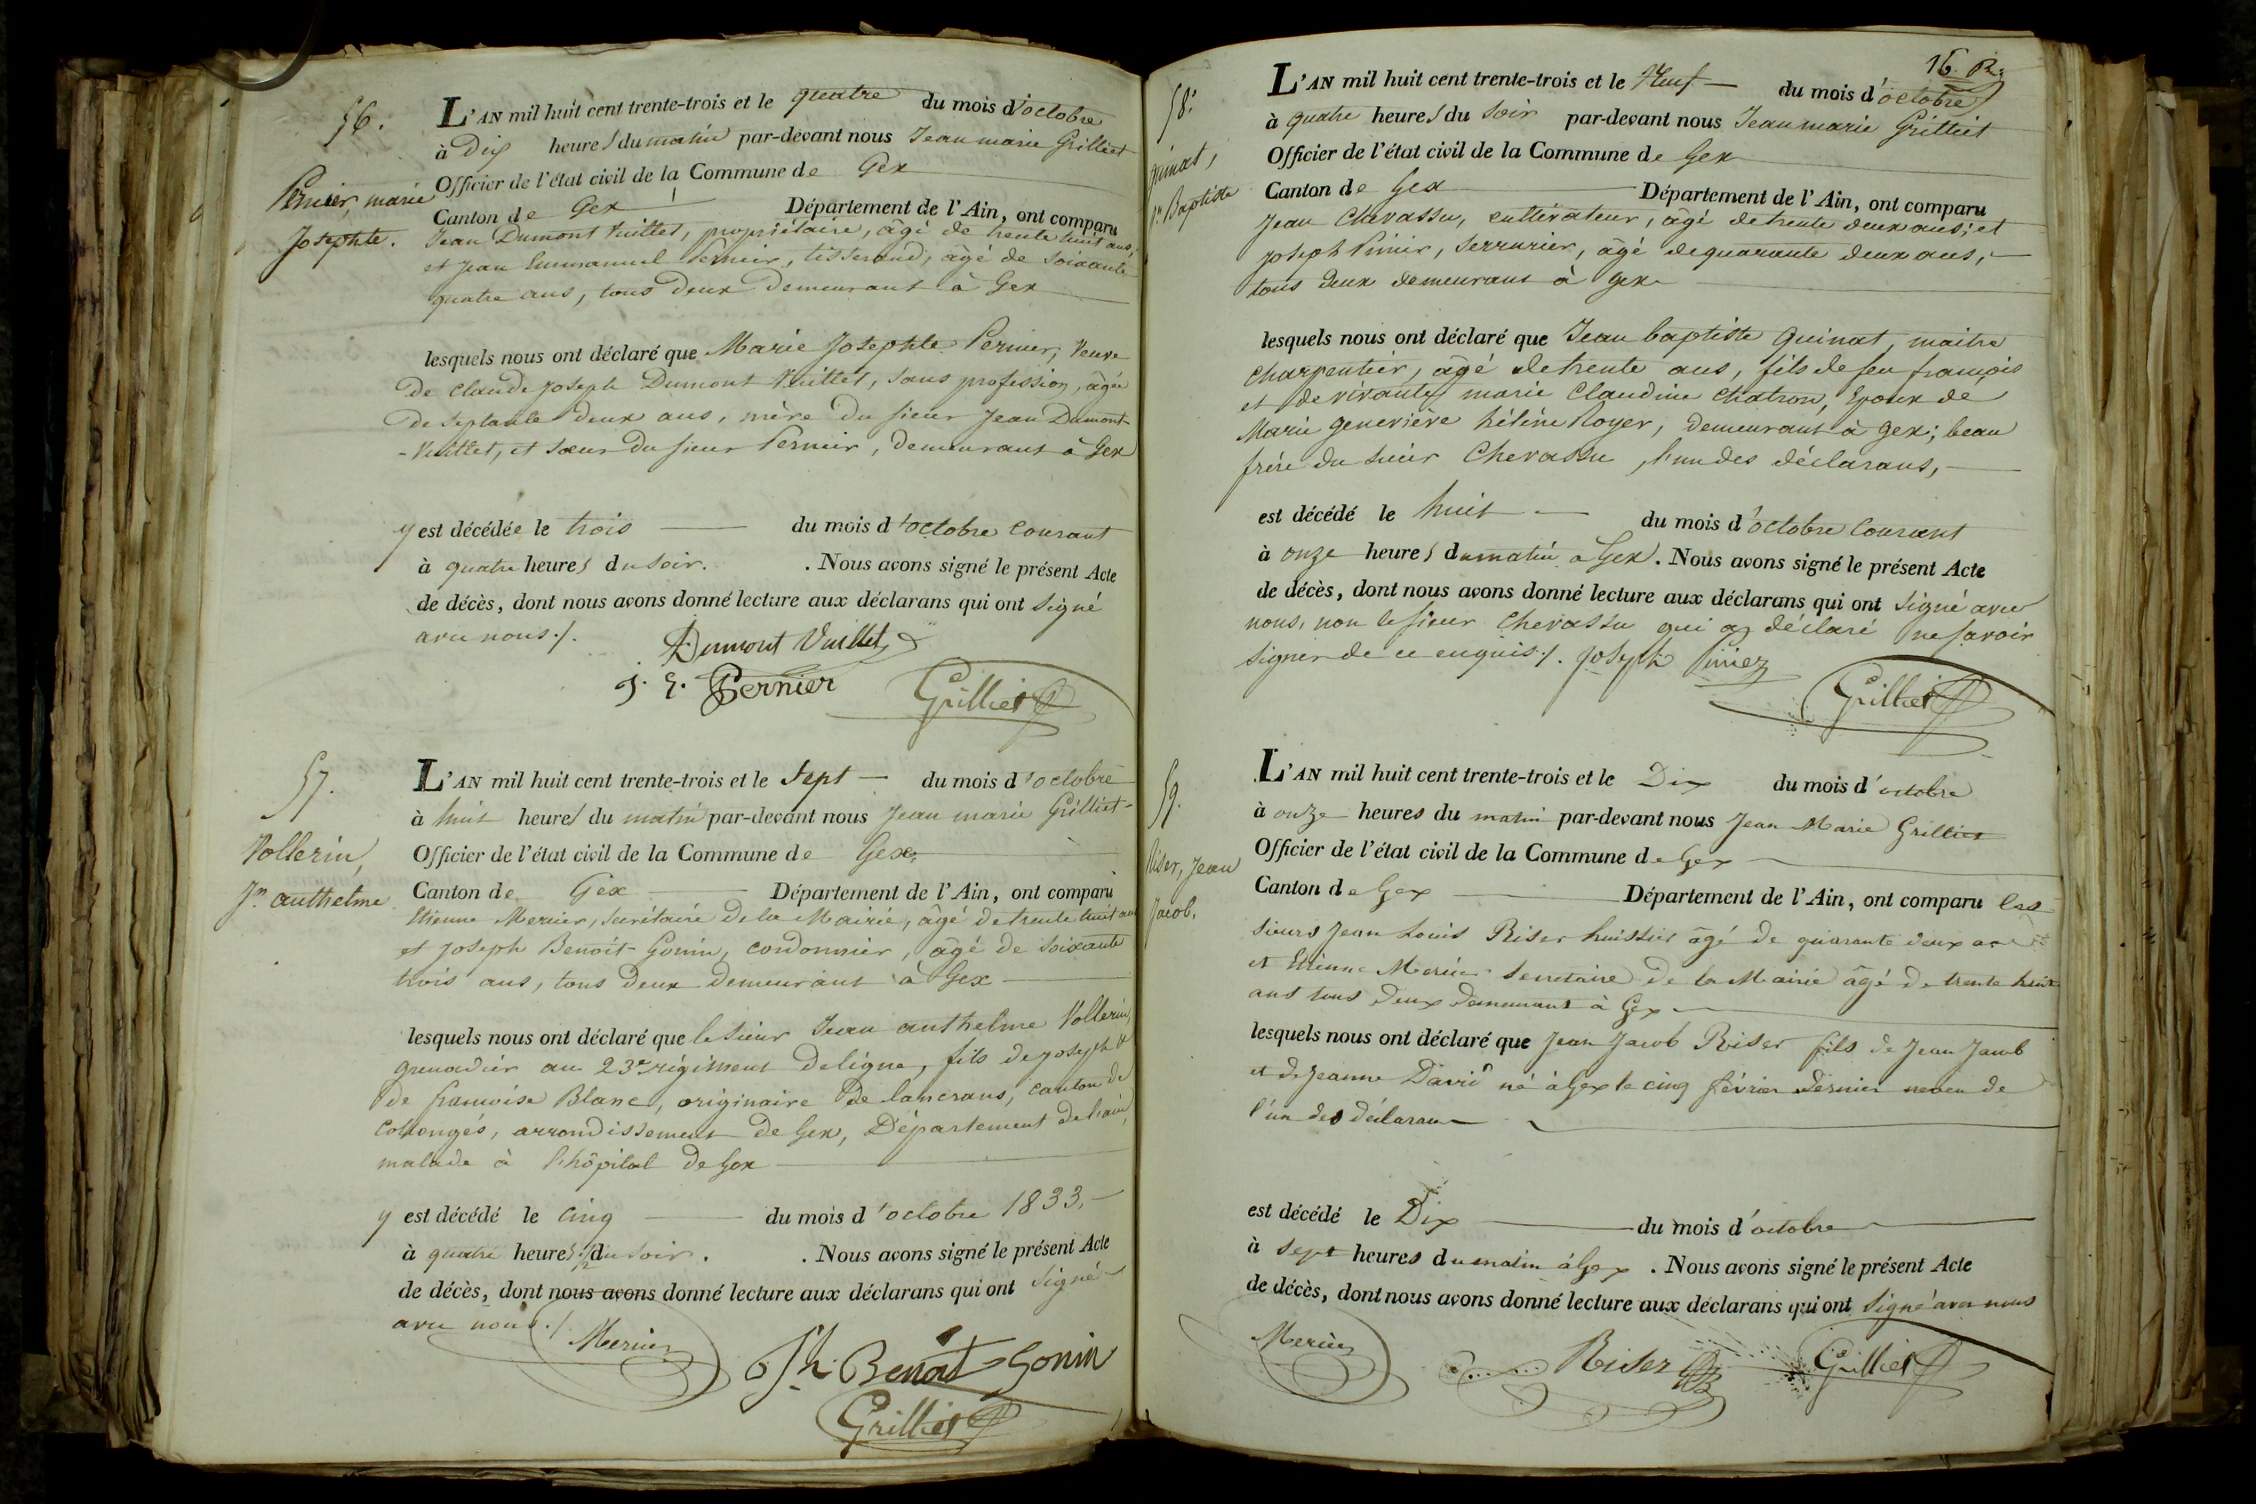 56.
Pernier, marie
Josephte.
L'AN mil huit cent trente-trois et le quatre du mois d'octobre
à Dix heures du matin par-devant nous Jean marie Grilliet
Officier de l'état civil de la Commune de Gex
Canton de Gex Département de l'Ain, ont comparu
Jean Dumont Vuillet, propriétaire, âgé de trente huit ans;
et Jean Emmanuel Pernier, tisserand, âgé de soixante
quatre ans, tous deux demeurant à Gex
lesquels nous ont déclaré que Marie Josephte Pernier, Veuve
de Claude Joseph Dumont Vuillet, sans profession, âgée
de septante deux ans, mère du sieur Jean Dumont-
-Vuillet, et sœur du sieur Pernier, demeurant à Gex
y est décédée le trois du mois d'octobre courant
à quatre heures du soir. . Nous avons signé le présent Acte
de décès, dont nous avons donné lecture aux déclarans qui ont signé
avec nous./.
Dumont Vuillet
J. E. Pernier
Grilliet
57.
Vollerin,
Jn. anthelme
L'AN mil huit cent trente-trois et le sept du mois d'octobre
à huit heures du matin par-devant nous Jean marie Grilliet
Officier de l'état civil de la Commune de Gex
Canton de Gex Département de l'Ain, ont comparu
Etienne Mercier, secrétaire de la Mairie, âgé de trente huit ans
et Joseph Benoit-Gonin, cordonnier, âgé de soixante
trois ans, tous deux demeurant à Gex
lesquels nous ont déclaré que le sieur Jean anthelme Vollerin,
grenadier au 23e régiment de ligne, fils de joseph &
de françoise Blanc, originaire de lancrans, canton de
Collonges, arrondissement de Gex, Département de l'ain,
malade à l'hôpital de Gex
y est décédé le cinq du mois d'octobre 1833,
à quatre heures 1/2 du soir. . Nous avons signé le présent Acte
de décès, dont nous avons donné lecture aux déclarans qui ont signé
avec nous./.
Mercier
Jh. Benoit-Gonin
Grilliet
16.
58.
quinat,
Jn. Baptiste
L'AN mil huit cent trente-trois et le Neuf du mois d'octobre
à quatre heures du soir par-devant nous Jean marie Grilliet
Officier de l'état civil de la Commune de Gex
Canton de Gex Département de l'Ain, ont comparu
Jean Chevassu, cultivateur, âgé de trente deux ans; et
joseph Pinier, serrurier, âgé de quarante deux ans,
tous deux demeurant à Gex
lesquels nous ont déclaré que Jean baptiste quinat, maitre
charpentier, âgé de trente ans, fils de feu françois
et de vivante marie Claudine Chatron, Epoux de
Marie geneviève hélène Royer, demeurant à Gex; beau
frère du sieur Chevassu, l'un des déclarans,
est décédé le huit du mois d'octobre courant
à onze heures du matin à Gex. Nous avons signé le présent Acte
de décès, dont nous avons donné lecture aux déclarans qui ont signé avec
nous, non le sieur Chevassu qui a déclaré ne savoir
signer de ce enquis./. joseph Pinier
Grilliet
59.
Riser, Jean
Jacob.
L'AN mil huit cent trente-trois et le Dix du mois d'octobre
à onze heures du matin par-devant nous Jean Marie Grilliet
Officier de l'état civil de la Commune de Gex
Canton de Gex Département de l'Ain, ont comparu les
sieurs Jean Louis Riser huissier âgé de quarante deux ans
et Etienne Mercier secretaire de la Mairie âgé de trente huit
ans tous deux demeurant à Gex
lesquels nous ont déclaré que Jean Jacob Riser fils de Jean Jacob
et de Jeanne David né à Gex le cinq février dernier neveu de
l'un des déclarans
est décédé le Dix du mois d'octobre
à sept heures du matin à Gex . Nous avons signé le présent Acte
de décès, dont nous avons donné lecture aux déclarans qui ont signé avec nous
Mercier
Riser
Grilliet